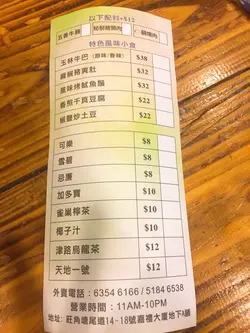 以下配料+$12
五香牛腩
秘製豬腩肉
醬燒肉
特色風味小食
玉林牛巴(原味/香辣) $38
麻辣豬爽肚 $32
風味烤魷魚鬚 $32
香煎千頁豆腐 $22
椒鹽炒土豆 $22
可樂 $8
雪碧 $8
忌廉 $8
加多寶 $10
雀巢檸茶 $10
椰子汁 $10
津路烏龍茶 $12
天地一號 $12
外賣電話:6354 6166 / 5184 6538
營業時間:11AM-10PM
地址:旺角塘尾道14-18號嘉禮大廈地下A舖